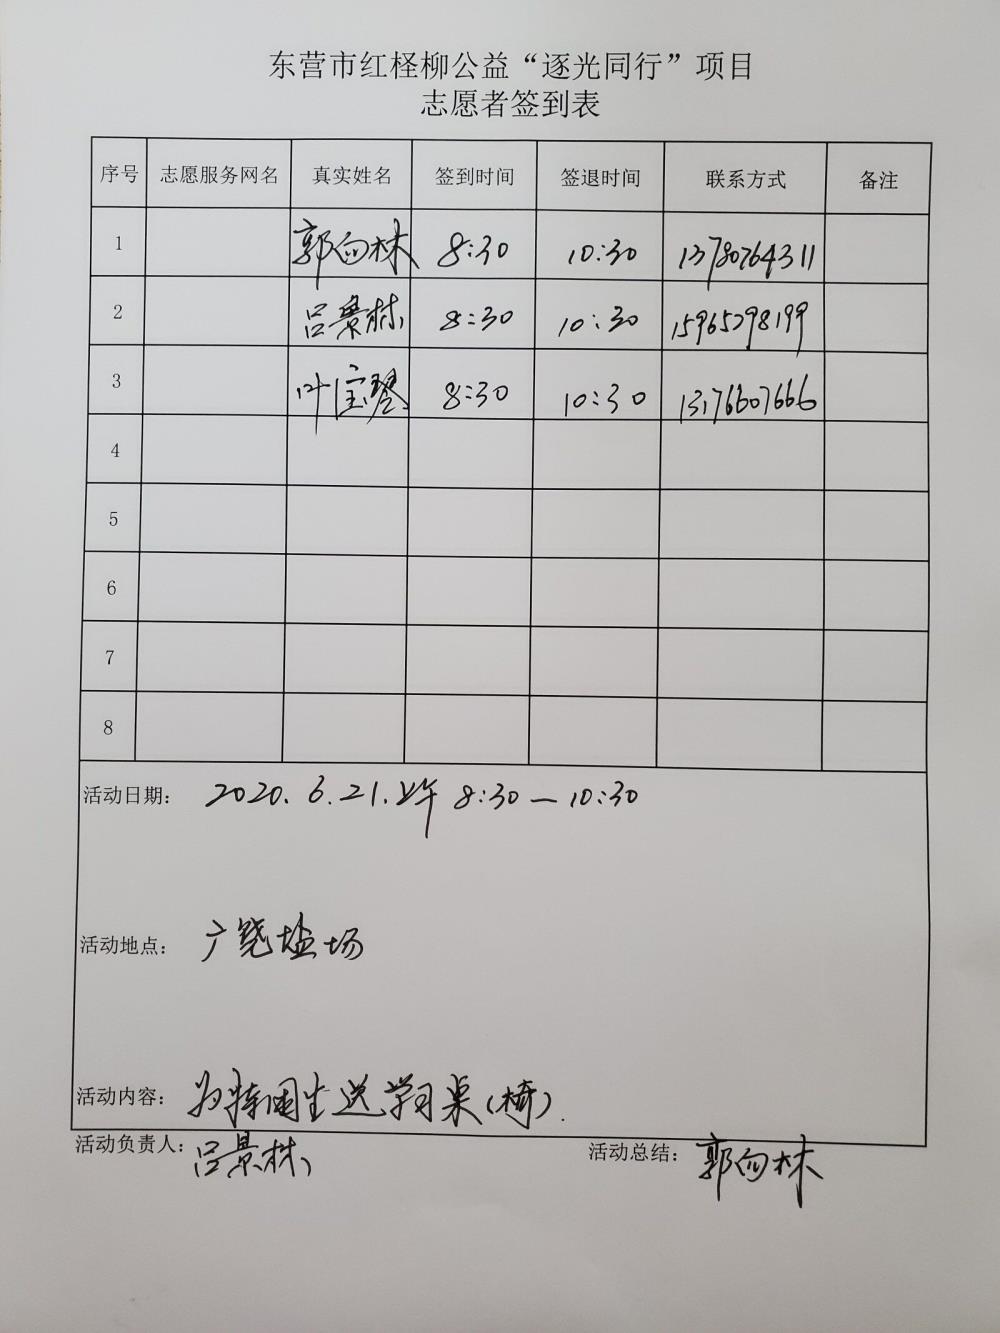 东营市红柽柳公益“逐光同行”项目
志愿者签到表
序号 志愿服务网名 真实姓名 签到时间 签退时间 联系方式 备注
1 郭向林 8:30 10:30 13780764311
2 吕景林 8:30 10:30 15965298199
3 叶宝琴 8:30 10:30 13176607666
4
5
6
7
8
活动日期: 2020.6.21.上午 8:30—10:30
活动地点: 广饶盐场
活动内容: 为特困生送学习桌(椅).
活动负责人: 吕景林 活动总结: 郭向林